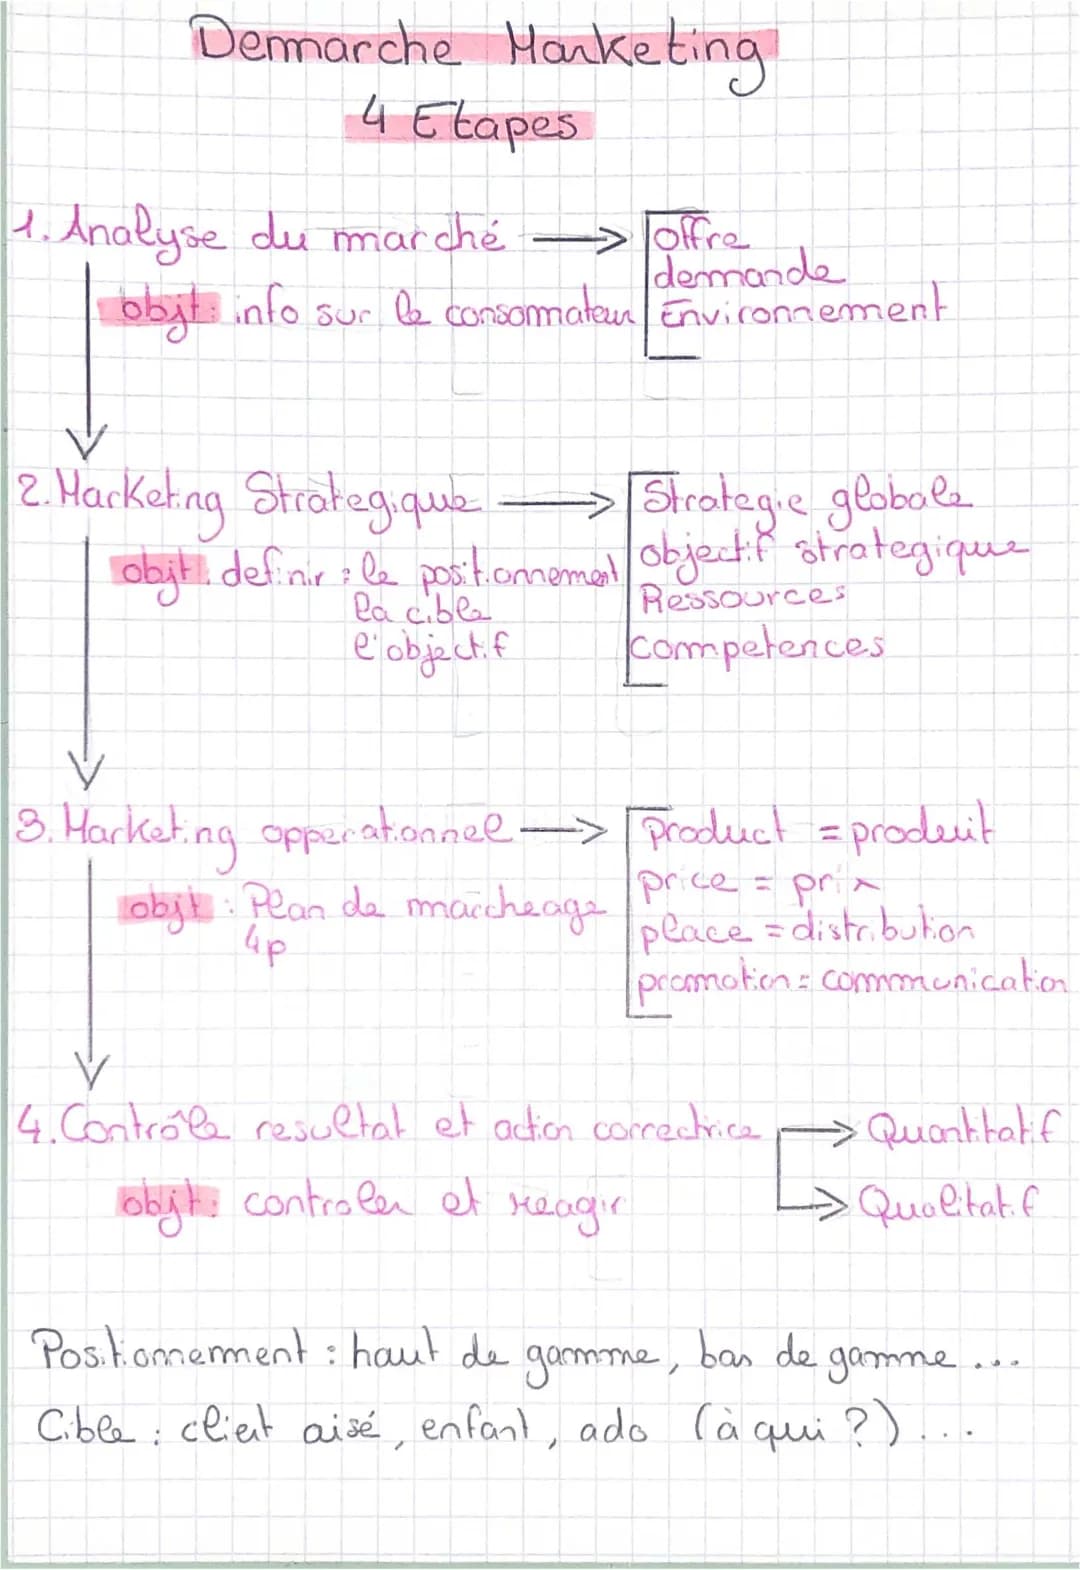 Demarche Marketing
4 Etapes
1. Analyse du marché → offre
demande
objt: info sur le consommateur Environnement
2. Marketing Strategique → Strategie globale
objectif strategique
objt: definir : le positionnement
Ressources
la cible
l'objectif competences
3. Marketing opperationnel → product = produit
price = prix
objt : Plan de marcheage
place = distribution
4p
promotion = communication
4. Contrôle resultat et action correctrice → Quantitatif
objt: controler et réagir → Qualitatif
Positionnement : haut de gamme, bas de gamme ...
Cible : client aisé, enfant, ado (à qui ?) ...